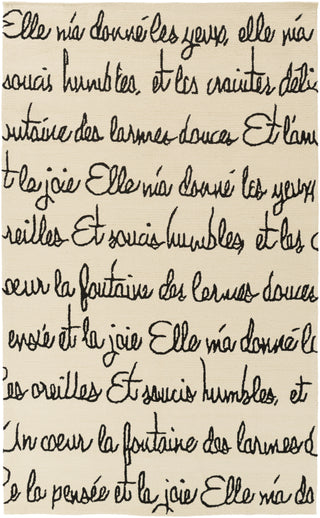 Elle m'a donné les yeux, elle m'a
soucis humbles, et les craintes déli
ntaine des larmes douces Et l'am
t la joie Elle m'a donné les yeux
reilles Et soucis humbles, et les c
oeur la fontaine des larmes douces
ensée et la joie Elle m'a donné le
les oreilles Et soucis humbles, et
Un coeur la fontaine des larmes d
Le la pensée et la joie Elle m'a do